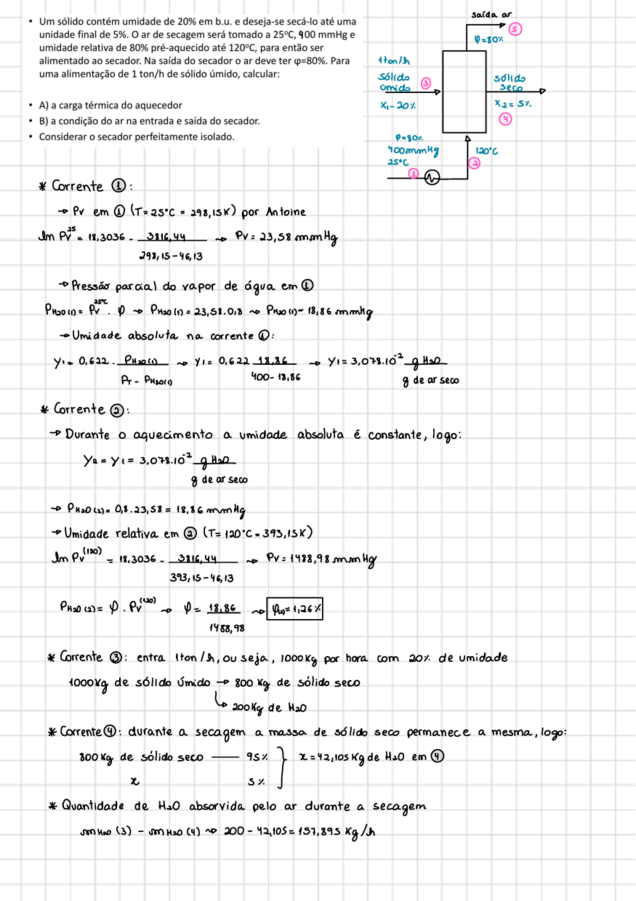 • Um sólido contém umidade de 20% em b.u. e deseja-se secá-lo até uma
unidade final de 5%. O ar de secagem será tomado a 25ºC, 400 mmHg e
umidade relativa de 80% pré-aquecido até 120ºC, para então ser
alimentado ao secador. Na saída do secador o ar deve ter φ=80%. Para
uma alimentação de 1 ton/h de sólido úmido, calcular:
• A) a carga térmica do aquecedor
• B) a condição do ar na entrada e saída do secador.
• Considerar o secador perfeitamente isolado.
saída ar
⑤
φ=80%
1ton/h
sólido
úmido ③
X1=20%
sólido
seco
X2=5%
④
φ=80%
400mmHg
25°C
①
120°C
②
* Corrente ①:
→ Pv em ① (T=25°C = 298,15K) por Antoine
ln Pv^25 = 18,3036 - 3816,44 / 298,15-46,13 → Pv = 23,58 mmHg
→ Pressão parcial do vapor de água em ①
PH2O(1) = Pv^25°C . φ → PH2O(1) = 23,58.0,8 → PH2O(1) = 18,86 mmHg
→ Umidade absoluta na corrente ①:
y1 = 0,622 . PH2O(1) / PT - PH2O(1) → y1 = 0,622 18,86 / 400-18,86 → y1 = 3,078.10^-2 g H2O / g de ar seco
* Corrente ②:
→ Durante o aquecimento a umidade absoluta é constante, logo:
y2 = y1 = 3,078.10^-2 g H2O / g de ar seco
→ PH2O(2) = 0,8.23,58 = 18,86 mmHg
→ Umidade relativa em ② (T=120°C = 393,15K)
ln Pv^(120) = 18,3036 - 3816,44 / 393,15-46,13 → Pv = 1488,98 mmHg
PH2O(2) = φ . Pv^(120) → φ = 18,86 / 1488,98 → φ(2) = 1,26%
* Corrente ③: entra 1ton/h, ou seja, 1000Kg por hora com 20% de umidade
1000Kg de sólido úmido → 800 Kg de sólido seco
→ 200Kg de H2O
* Corrente ④: durante a secagem a massa de sólido seco permanece a mesma, logo:
800 Kg de sólido seco — 95% } x = 42,105 Kg de H2O em ④
x 5%
* Quantidade de H2O absorvida pelo ar durante a secagem
mH2O (3) - mH2O (4) → 200 - 42,105 = 157,895 Kg/h